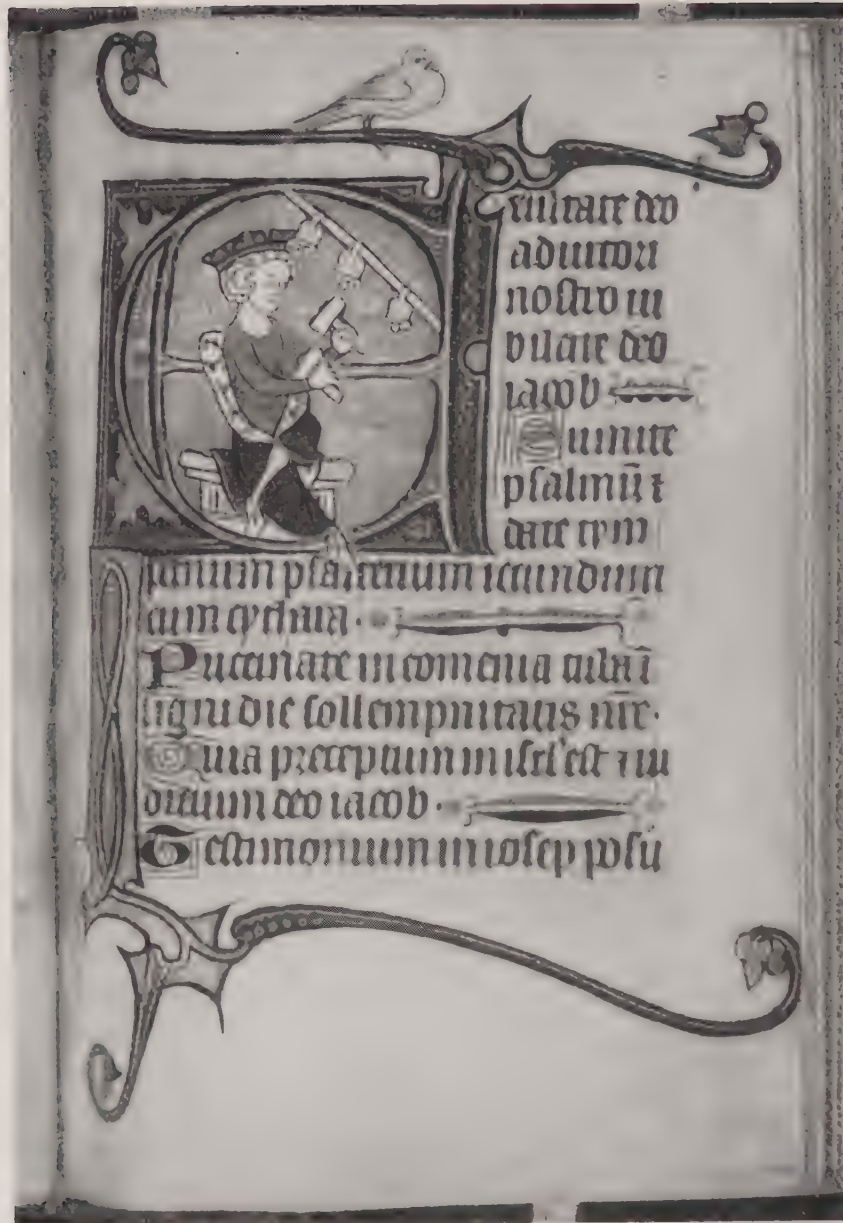 Exultate deo
adiutori
nostro iu
bilate deo
iacob
Sumite
psalmū ⁊
date tym
panum psalterium iocundum
cum cythara.
Buccinate in eomenia tuba ī
signi die sollempnitatis nr̄e.
Quia preceptum in isrl' est ⁊ iu
dicium deo iacob.
Testimonium in iosep posu